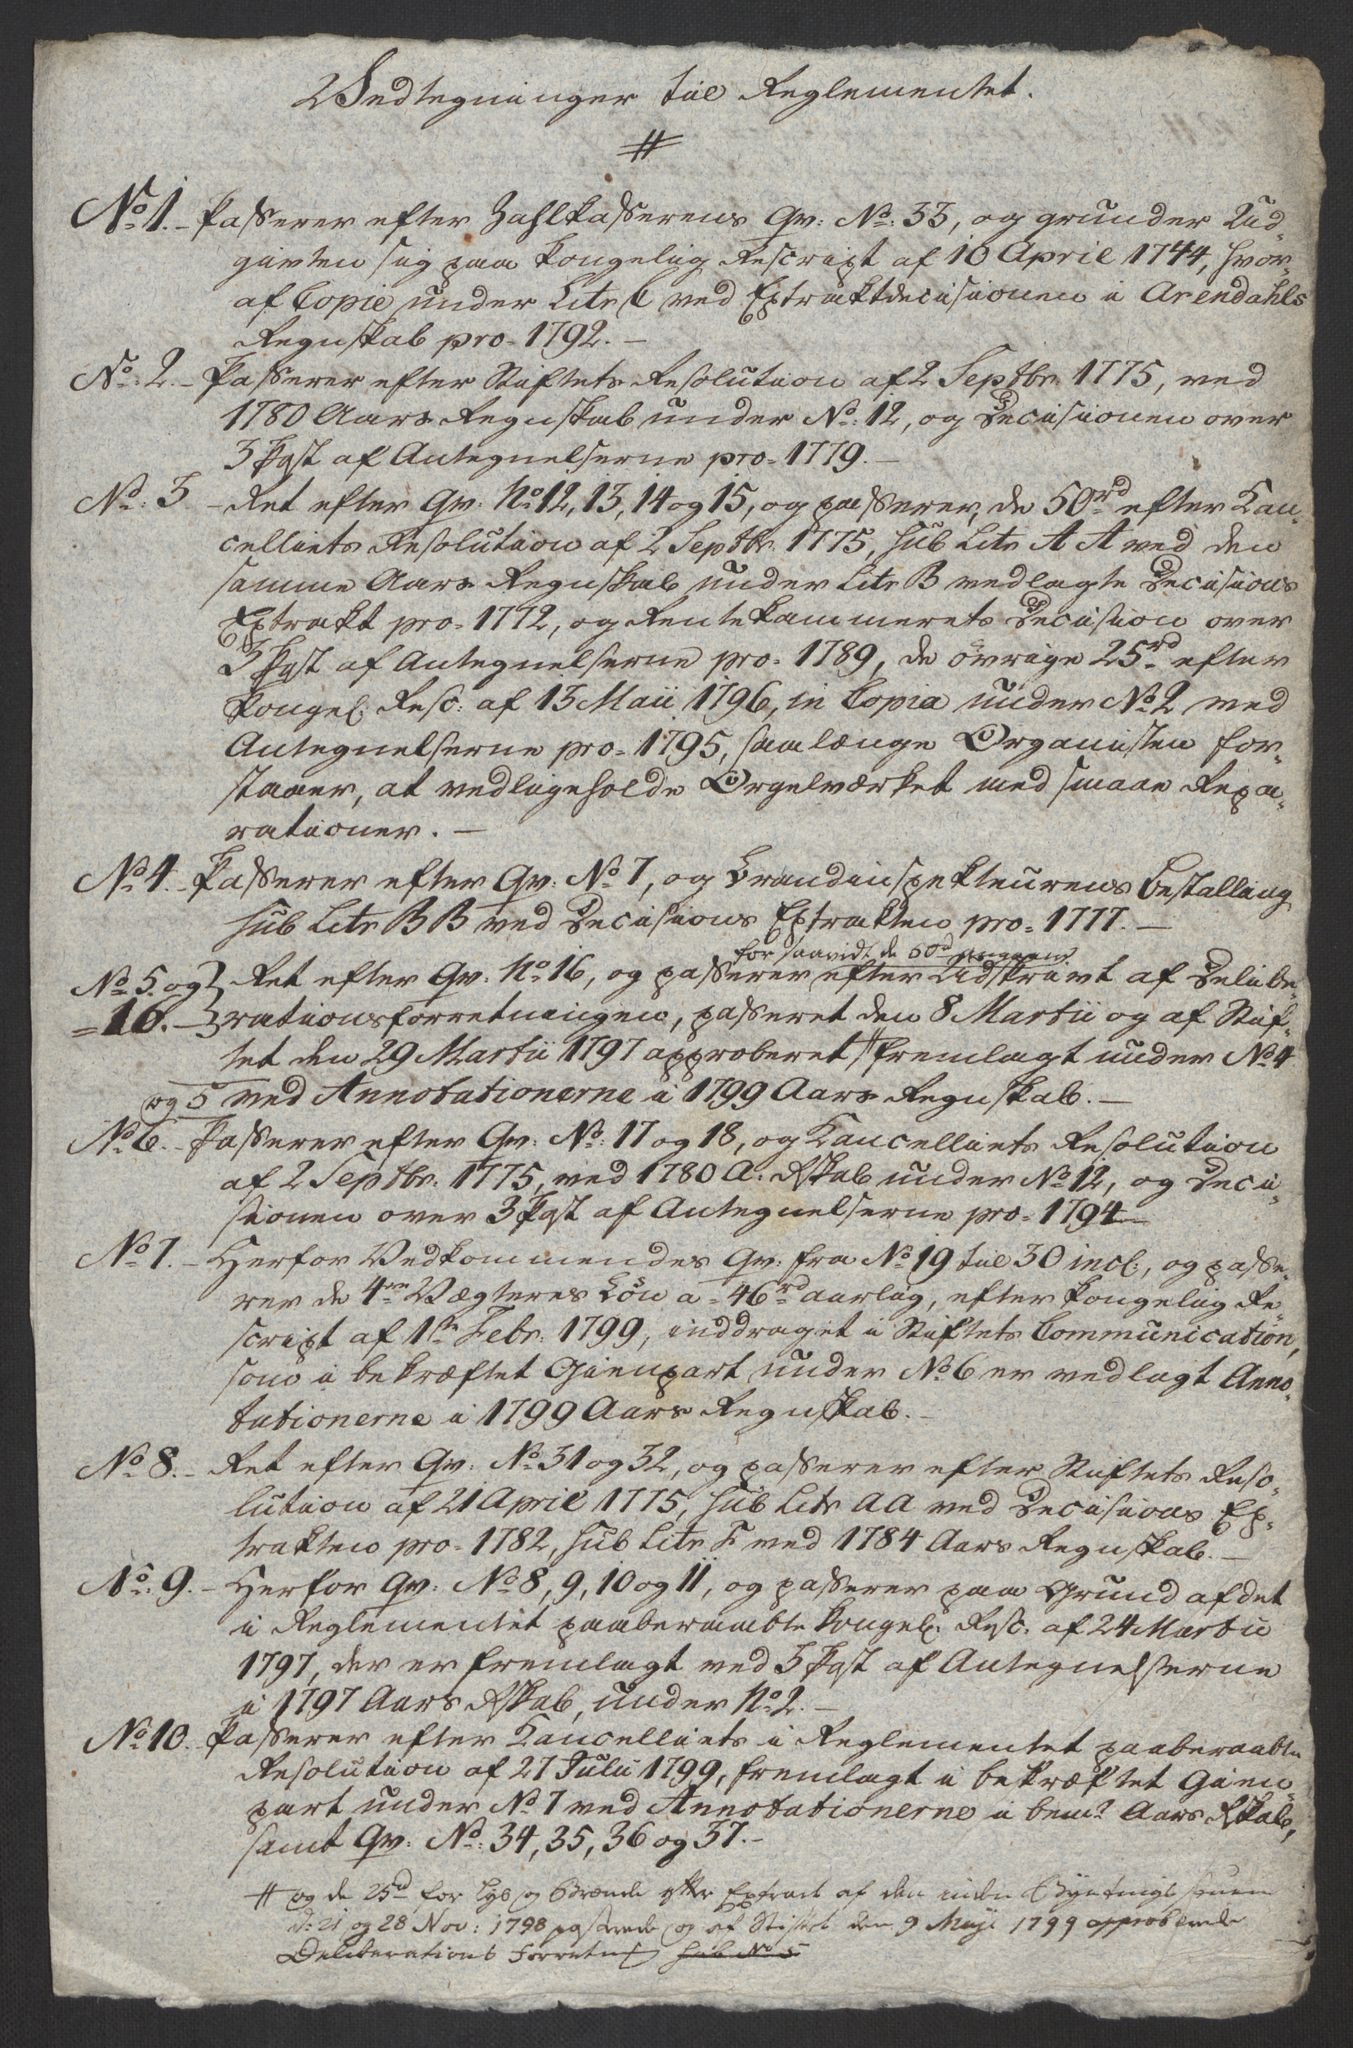 Vedtegninger til Reglementet.
#
No. 1. Passerer efter Zahlkasserens Qv: No: 33, og grunder Ud-
givten sig paa Kongelig Rescript af 10 April 1744, hvor-
af Copie under Litr C ved Extraktdecisionen i Arendahls
Regnskab pro. 1792. -
No: 2. - Passerer efter Stiftets Resolution af 2 Septbr 1775, ved
1780 Aars Regnskab under No: 12, og Decisionen over
3 Post af Antegnelserne pro. 1779. -
No: 3 - Ret efter Qv: No. 12, 13, 14 og 15, og passerer, de 50rd efter Kan-
celliets Resolution af 2 Septbr 1775, sub Litr A A ved den
samme Aars Regnskab under Litr B vedlagte Decisions
Extrakt pro. 1772, og Rentekammerets Decision over
3 Post af Antegnelserne pro. 1789, de övrige 25rd efter
Kongel: Resc: af 13 Maii 1796, in Copia under No. 2 ved
Antegnelserne pro. 1795, saalænge Organisten for-
staaer, at vedligeholde Orgelværket med smaae Repa-
rationer. -
No. 4. - Passerer efter Qv: No. 7, og Brandinspekteurens Bestalling
sub Litr B B ved Decisions Extrakten pro. 1777. -
for saavidt de 60rd
No. 5. og } Ret efter Qv: No. 16, og passerer efter Udskrivt af Delibe-
= 16. - } rationsforretningen, passeret den 8 Martii og af Stif-
tet den 29 Martii 1797 approberet # fremlagt under No. 4
og 5 ved Annotationerne i 1799 Aars Regnskab. -
No. 6. - Passerer efter Qv: No: 17 og 18, og Kancelliets Resolution
af 2 Septbr. 1775, ved 1780 A: Rskab under No. 12, og Deci-
sionen over 3 Post af Antegnelserne pro. 1794 -
No. 7. - Herfor Vedkommendes Qv: fra No. 19 til 30 incl:, og passe-
rer de 4re Vægteres Lön a 46rd aarlig, efter Kongelig Re-
script af 1ste Febr: 1799, inddraget i Stiftets Communication,
som i bekræftet Gienpart under No. 6 er vedlagt Anno-
tationerne i 1799 Aars Regnskab. -
No. 8. - Ret efter Qv: No. 31 og 32, og passerer efter Stiftets Reso-
lution af 21 April 1775, sub Litr AA ved Decisions Ex-
trakten pro. 1782, sub Litr F ved 1784 Aars Regnskab. -
No: 9. - Herfor Qv: No. 8, 9, 10 og 11, og passerer paa Grund af det
i Reglementet paaberaabte Kongel: Resc: af 24 Martii
1797, der er fremlagt ved 3 Post af Antegnelserne
i 1797 Aars Rskab, under No. 2. -
No. 10. Passerer efter Kancelliets i Reglementet paaberaabte
Resolution af 27 Julii 1799, fremlagt i bekræftet Gien-
part under No. 7 ved Annotationerne i bem: Aars Rskab,
samt Qv: No: 34, 35, 36 og 37. -
# og de 25rd for Lys og Brænde efter Extract af den
d: 21 og 28 Nov: 1798 passerede og af Stiftet den 9 Maji 1799 approberede
Deliberations Forretning sub No. 5